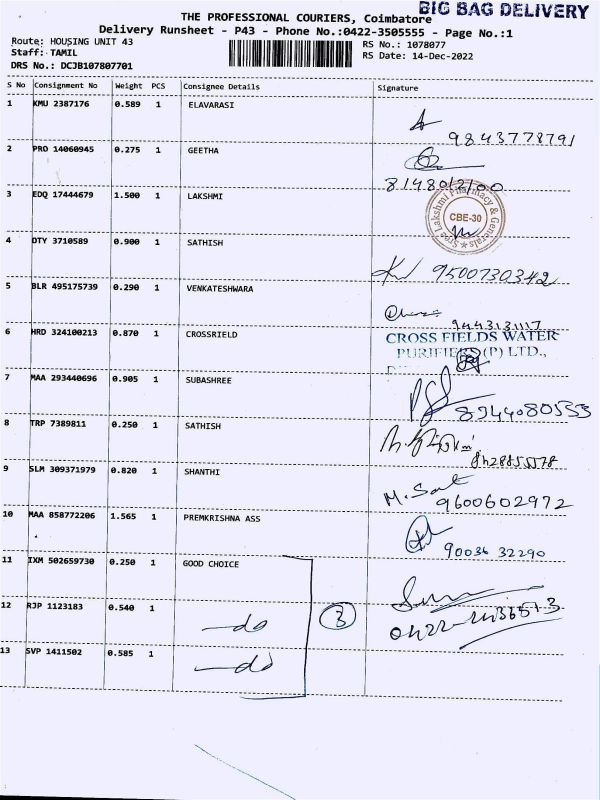 BIG BAG DELIVERY
THE PROFESSIONAL COURIERS, Coimbatore
Delivery Runsheet - P43 - Phone No.:0422-3505555 - Page No.:1
Route: HOUSING UNIT 43
Staff: TAMIL
DRS No.: DCJB107807701
RS No.: 1078077
RS Date: 14-Dec-2022
S No Consignment No Weight PCS Consignee Details Signature
1 KMU 2387176 0.589 1 ELAVARASI
9843778791
2 PRO 14060945 0.275 1 GEETHA
8148012100
3 EDQ 17444679 1.500 1 LAKSHMI
Sree Lakshmi Pharmacy & Generals
CBE-30
4 DTY 3710589 0.900 1 SATHISH
9500730342
5 BLR 495175739 0.290 1 VENKATESHWARA
9443131117
6 HRD 324100213 0.870 1 CROSSRIELD
CROSS FIELDS WATER
PURIFIERS (P) LTD.,
7 MAA 293440696 0.905 1 SUBASHREE
8944080553
8 TRP 7389811 0.250 1 SATHISH
9 SLM 309371979 0.820 1 SHANTHI
9600602972
10 MAA 858772206 1.565 1 PREMKRISHNA ASS
90036 32290
11 IXM 502659730 0.250 1 GOOD CHOICE
12 RJP 1123183 0.540 1 —do
3
13 SVP 1411502 0.585 1 —do